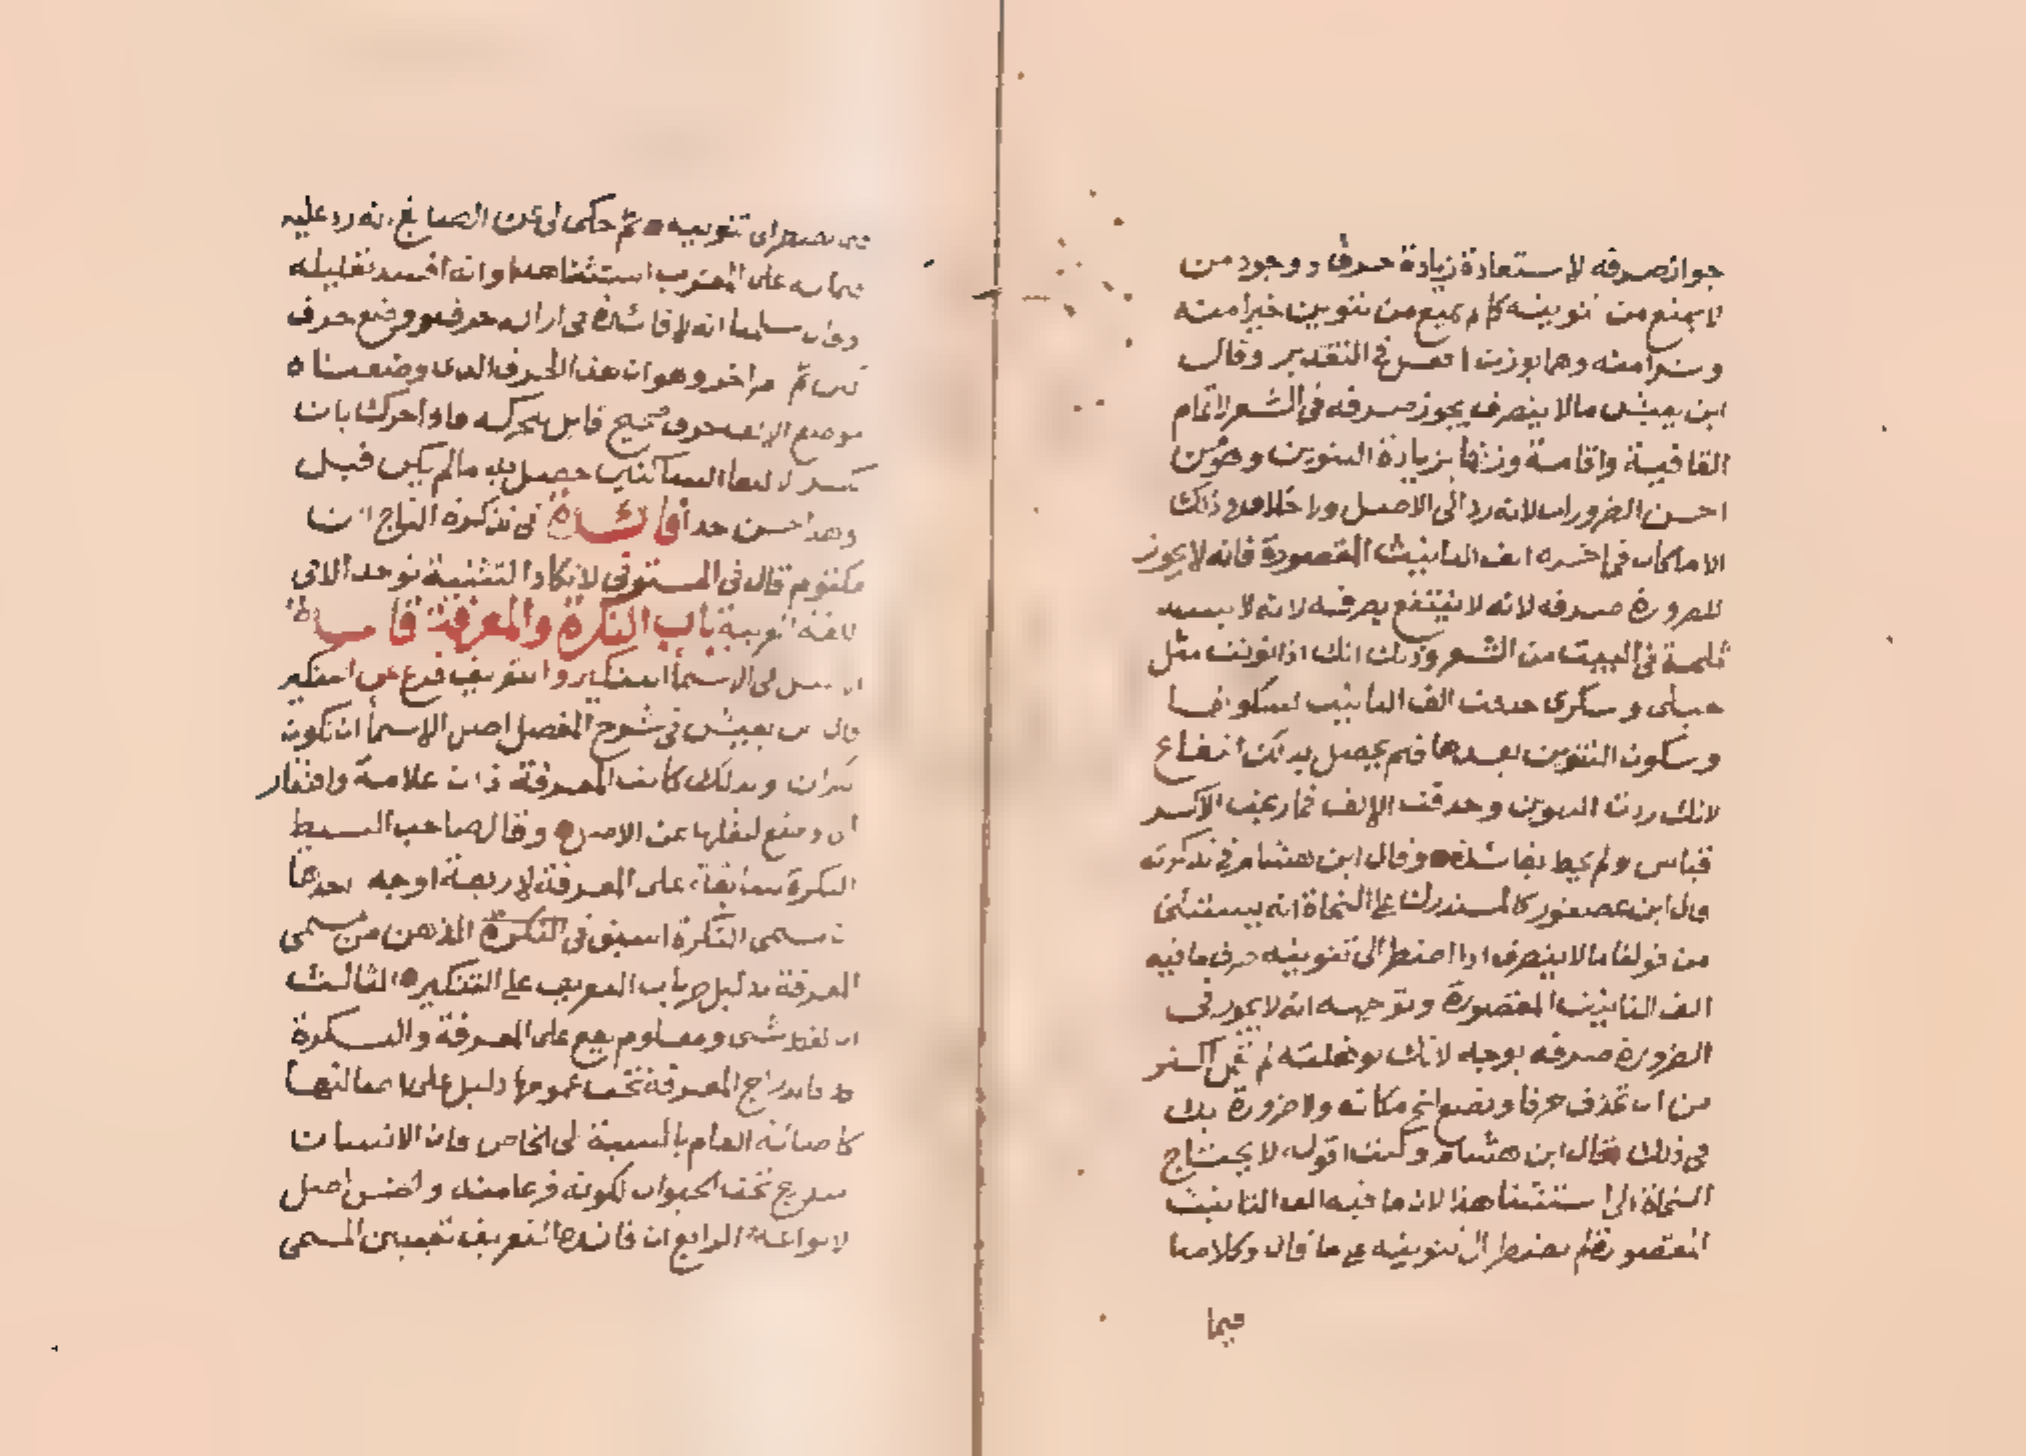 جواز صرفه لاستعادة زيادة حرف ووجود من
لا يمنع من تنوينه كما لم يمنع من تنوين خيرا منه
وشرا منه وهما بوزن افعل في التقدير وقال
ابن يعيش مالا ينصرف يجوز صرفه في الشعر لاتمام
القافية واقامة وزنها بزيادة التنوين وهو من
احسن الضرورات لانه رد الى الاصل ولا خلاف في ذلك
الا ما كان في اخره الف التانيث المقصورة فانه لا يجوز
للضرورة صرفه لانه لا ينتفع بصرفه لانه لا يسد
ثلمة في البيت من الشعر وذلك انك اذا نونت مثل
حبلى وسكرى حذفت الف التانيث لسكونها
وسكون التنوين بعدها فلم يحصل بذلك انتفاع
لانك زدت التنوين وحذفت الالف فما ربحت الا كسر
قياس ولم يحظ بفائدة وقال ابن هشام في تذكرته
قال ابن عصفور كالمستدرك على النحاة انه يستثنى
من قولنا مالا ينصرف اذا اضطر الى تنوينه صرف ما فيه
الف التانيث المقصورة وتوجيهه انه لا يجوز في
الضرورة صرفه بوجه لانك لو فعلته لم تعمل اكثر
من ان تحذف حرفا وتضع اخر مكانه ولا ضرورة بك
في ذلك قال ابن هشام وكنت اقول لا يحتاج
النحاة الى استثنا هذا لان ما فيه الف التانيث
المقصورة لم يضطر الى تنوينه على ما قال وكلامنا
فيما
فيما يضطر الى تنوينه ثم حكى لي عن ابن الصايغ انه رد عليه
على المقرب استثنا هذا وانه افسد تعليله
وقال سلمنا انه لا فائدة في ازالة حرف ووضع حرف
لكن ثم امر اخر وهو ان هذا الحرف الذي وضعناه
موضع الالف حرف صحيح قابل للحركة فاذا حرك بان
كسر لالتقا الساكنين حصل به مالم يكن قبل
وهذا حسن جدا فائدة في تذكرة التاج ابن
مكتوم قال في المستوفي لا تكاد التثنية توجد الا في
اللغة العربية باب النكرة والمعرفة قاعدة
الاصل في الاسما التنكير والتعريف فرع عن التنكير
قال ابن يعيش في شرح المفصل اصل الاسما ان تكون
نكرات ولذلك كانت المعرفة ذات علامة وافتقار
الى وضع لنقلها عن الاصل وقال صاحب البسيط
النكرة سابقة على المعرفة لاربعة اوجه احدها
ان مسمى النكرة اسبق في النكرة الذهن من مسمى
المعرفة بدليل طريان التعريف على التنكير الثالث
ان لفظ شي ومعلوم يقع على المعرفة والنكرة
فاندراج المعرفة تحت عمومها دليل على اصالتها
كاصالة العام بالنسبة الى الخاص فان الانسان
مندرج تحت الحيوان لكونه فرعا منه والجنس اصل
لانواعه الرابع ان فائدة التعريف تعيين المسمى